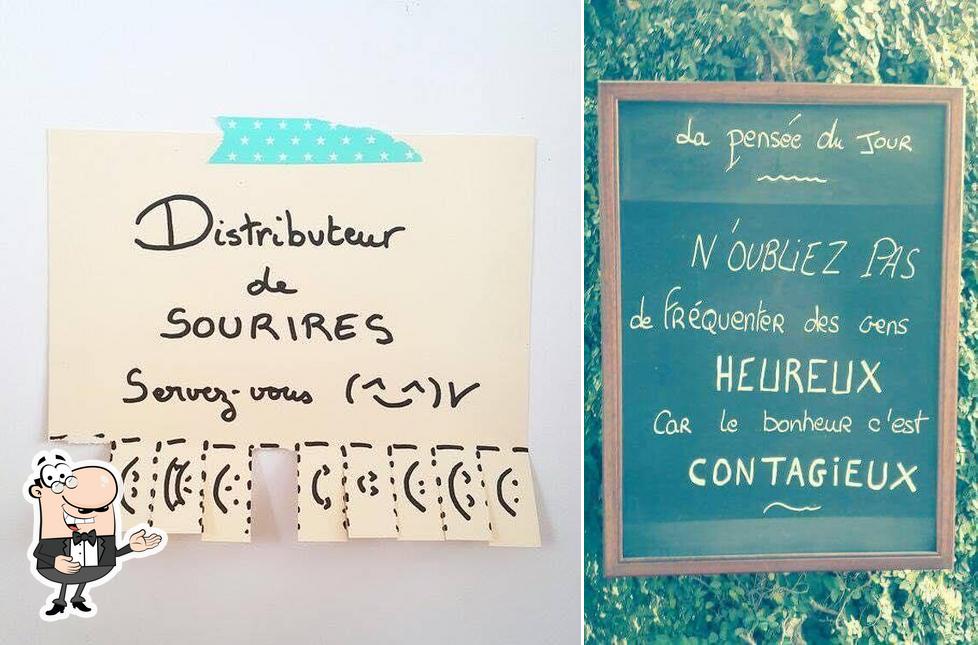 Distributeur
de
SOURIRES
Servez-vous (^‿^)V
La pensée du JOUR
N'OUBLIEZ PAS
de FRÉQUENTER des gens
HEUREUX
CAR le bonheur c'est
CONTAGiEUX